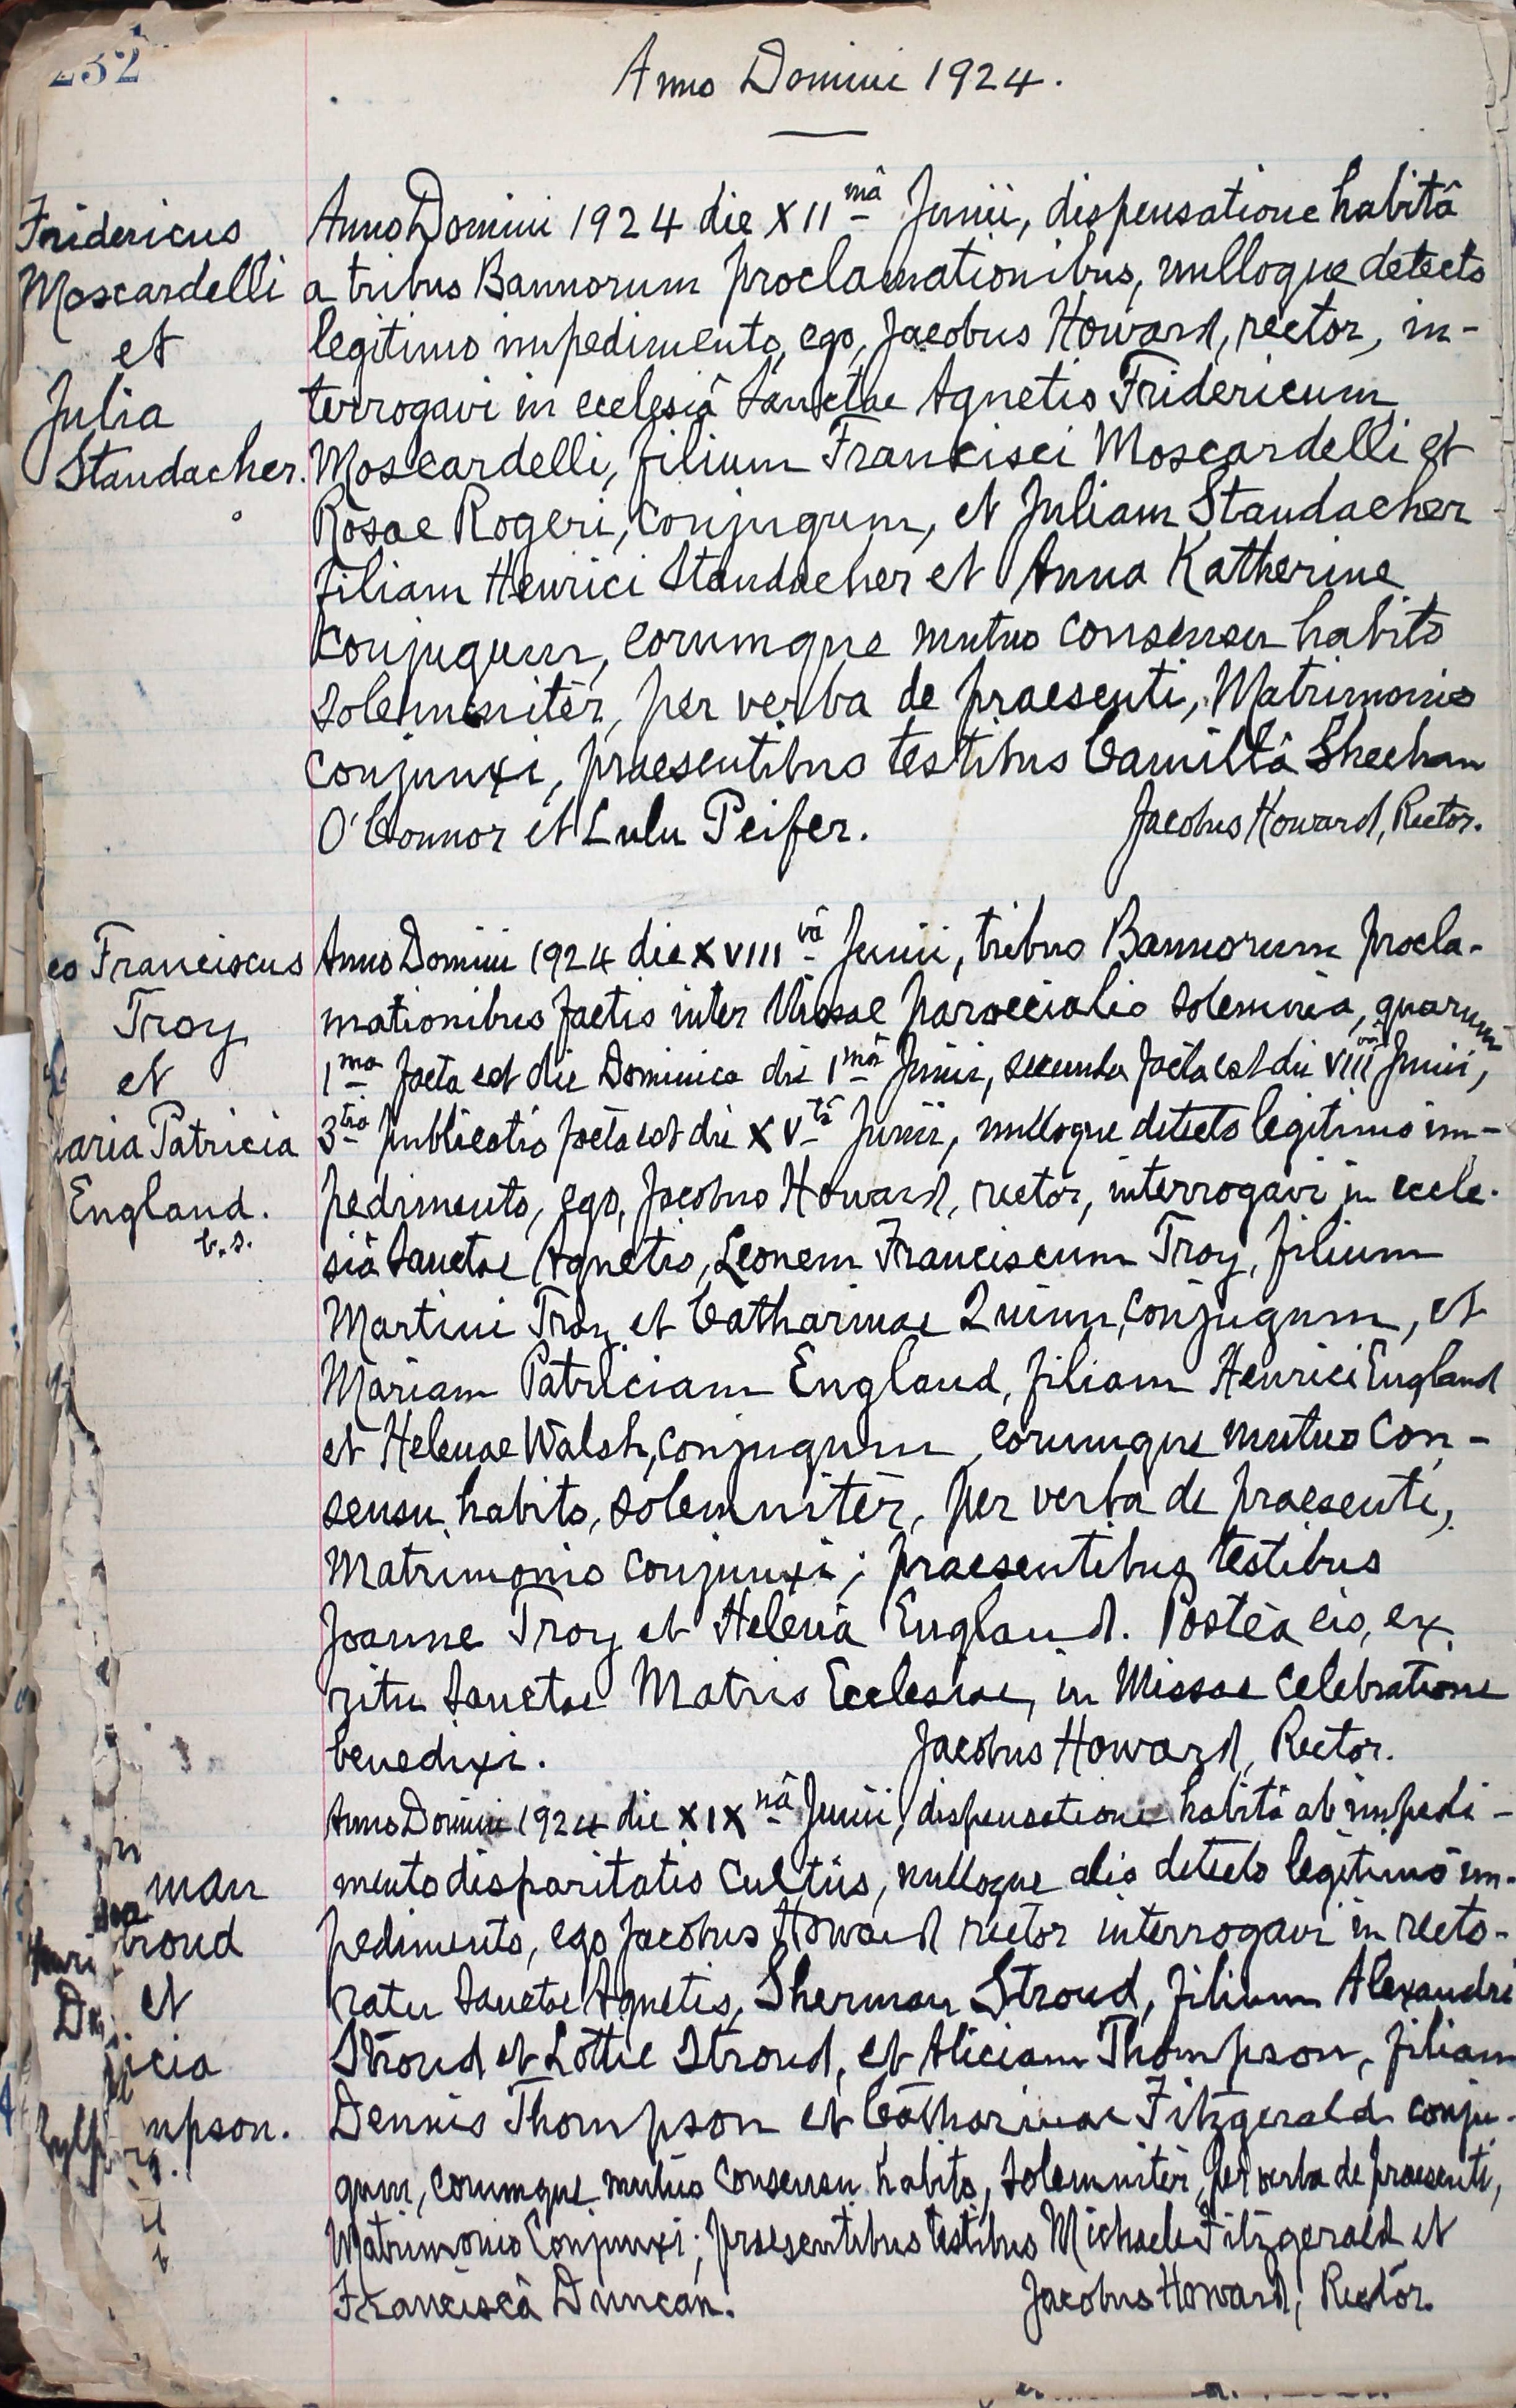 232
Anno Domini 1924.
Fridericus
Moscardelli
et
Julia
Standacher.
Anno Domini 1924 die XII mâ Junii, dispensatione habitâ
a tribus Bannorum proclamationibus, nulloque detecto
legitimo impedimento, ego, Jacobus Howard, rector, in-
terrogavi in ecclesiâ Sanctae Agnetis Fridericum
Moscardelli, filium Francisci Moscardelli et
Rosae Rogeri, conjugum, et Juliam Standacher
filiam Henrici Standacher et Anna Katherine
conjugum, eorumque mutuo consensu habito
solemniter, per verba de praesenti, Matrimonio
conjunxi, praesentibus testibus Camillâ Sheehan
O'Connor et Lulu Peifer. Jacobus Howard, Rector.
eo Franciscus
Troy
et
aria Patricia
England.
Anno Domini 1924 die XVIII vâ Junii, tribus Bannorum procla-
mationibus factis inter Missae paroecialis solemnia, quarum
1ma facta est die Dominica die 1mâ Junii, secunda facta est die VIII Junii,
3tia publicatio facta est die XV tâ Junii, nulloque detecto legitimo im-
pedimento, ego, Jacobus Howard, rector, interrogavi in eccle-
siâ Sanctae Agnetis, Leonem Franciscum Troy, filium
Martini Troy et Catharinae Quinn, conjugum, et
Mariam Patriciam England, filiam Henrici England
et Helenae Walsh, conjugum, eorumque mutuo con-
sensu habito, solemniter, per verba de praesenti,
Matrimonio conjunxi; praesentibus testibus
Joanne Troy et Helenâ England. Posteà eis, ex
ritu Sanctae Matris Ecclesiae, in Missae celebratione
benedixi. Jacobus Howard, Rector.
man
troud
et
icia
mpson.
Anno Domini 1924 die XIX nâ Junii, dispensatione habitâ ab impedi-
mento disparitatis cultûs, nulloque alio detecto legitimo im-
pedimento, ego Jacobus Howard rector interrogavi in recto-
ratu Sanctae Agnetis, Sherman Stroud, filium Alexandri
Stroud et Lottie Stroud, et Aliciam Thompson, filiam
Dennis Thompson et Catharinae Fitzgerald conju-
gum, eorumque mutuo consensu habito, solemniter, per verba de praesenti,
Matrimonio Conjunxi; praesentibus testibus Michaele Fitzgerald et
Franciscâ Duncan. Jacobus Howard, Rector.